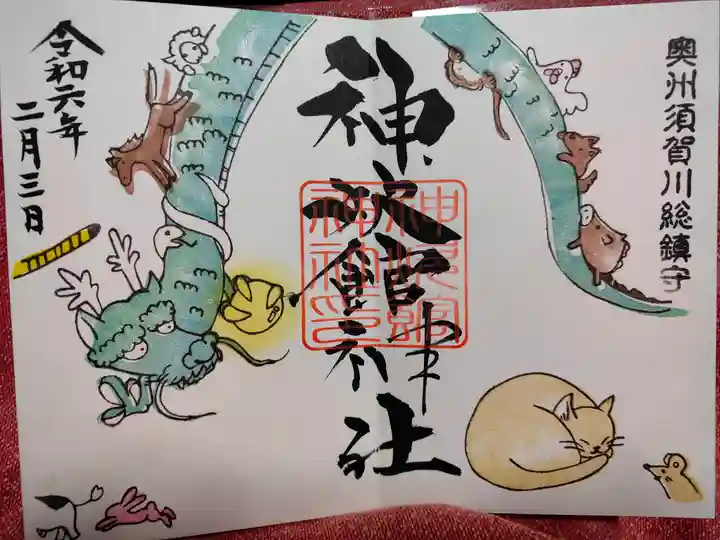 奥州須賀川総鎮守
神炊館神社
神炊館
神社印
令和六年
二月三日